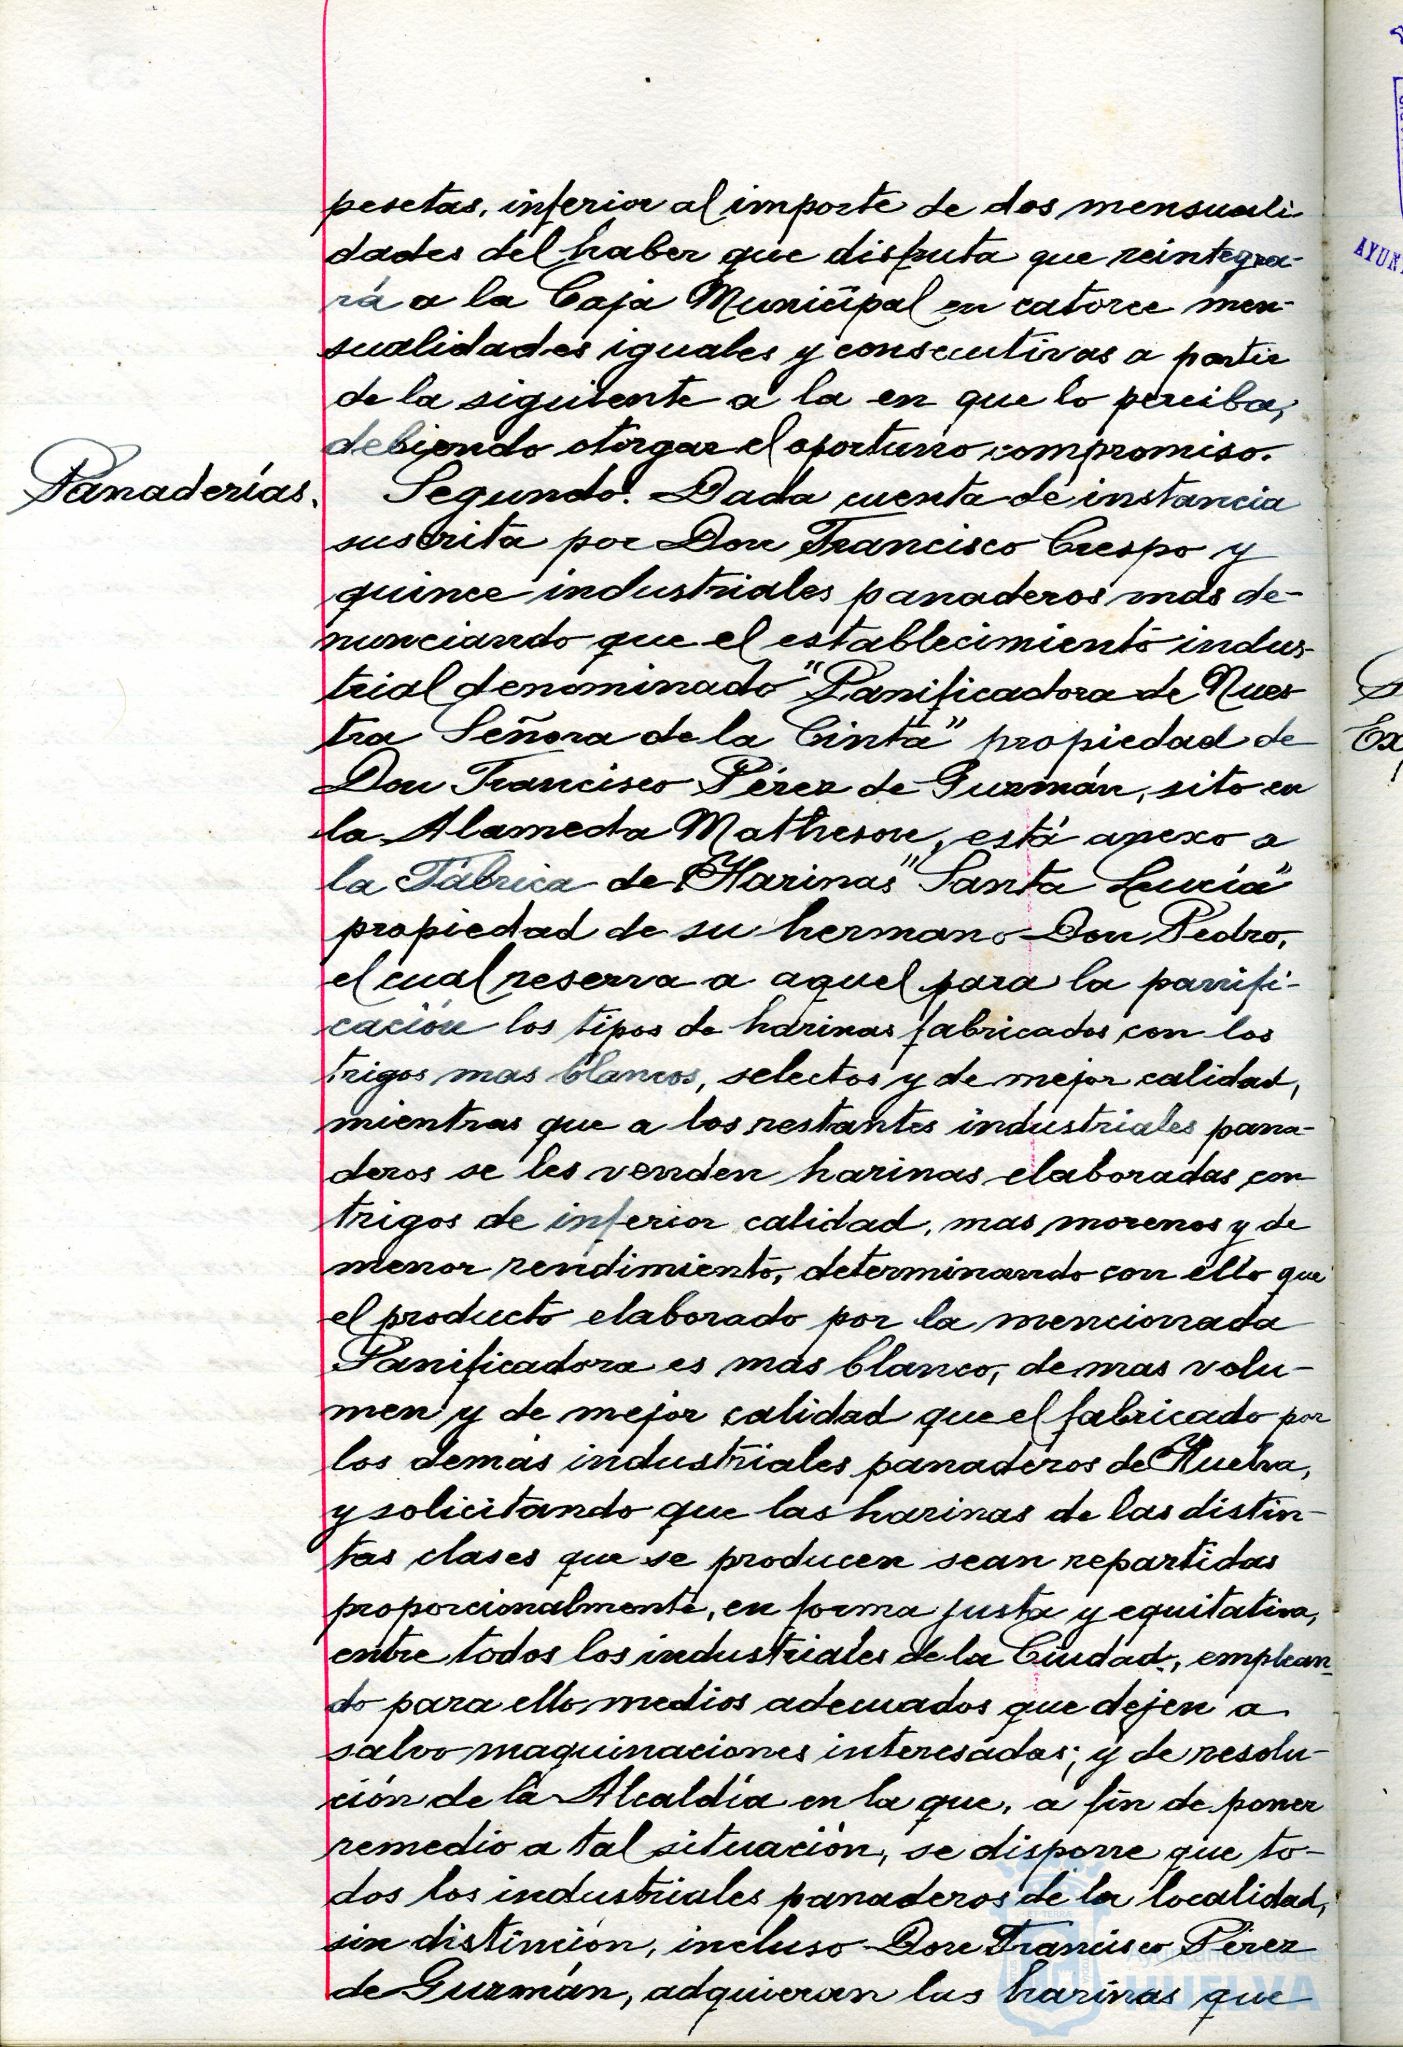 pesetas, inferior al importe de dos mensuali
dades del haber que disfruta que reintegra-
rá a la Caja Municipal en catorce men-
sualidades iguales y consecutivas a partir
de la siguiente a la en que lo perciba,
debiendo otorgar el oportuno compromiso.
Panaderías.
Segundo. Dada cuenta de instancia
suscrita por Don Francisco Crespo y
quince industriales panaderos mas de-
nunciando que el establecimiento indus-
trial denominado "Panificadora de Nues
tra Señora de la Cinta" propiedad de
Don Francisco Pérez de Guzmán, sito en
la Alameda Matheson, está anexo a
la Fábrica de Harinas "Santa Lucía"
propiedad de su hermano Don Pedro,
el cual reserva a aquel para la panifi-
cación los tipos de harinas fabricados con los
trigos mas blancos, selectos y de mejor calidad,
mientras que a los restantes industriales pana-
deros se les venden harinas elaboradas con
trigos de inferior calidad, mas morenos y de
menor rendimiento, determinando con ello que
el producto elaborado por la mencionada
Panificadora es mas blanco, de mas volu-
men y de mejor calidad que el fabricado por
los demás industriales panaderos de Huelva,
y solicitando que las harinas de las distin-
tas clases que se producen sean repartidas
proporcionalmente, en forma justa y equitativa,
entre todos los industriales de la Ciudad, emplean
do para ello medios adecuados que dejen a
salvo maquinaciones interesadas; y de resolu-
ción de la Alcaldía en la que, a fin de poner
remedio a tal situación, se dispone que to-
dos los industriales panaderos de la localidad,
sin distinción, incluso Don Francisco Pérez
de Guzmán, adquieran las harinas que
Ayuntamiento de
HUELVA